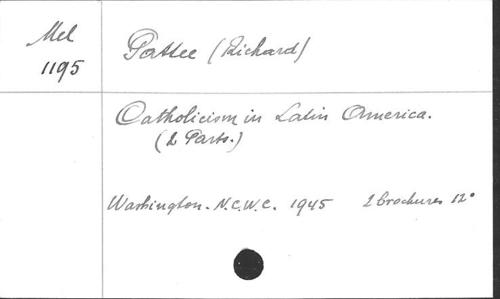 Mel
1195
Pattee (Richard)
Catholicism in Latin America.
(2 Parts.)
Washington. N.C.W.C. 1945 2 brochures 12°